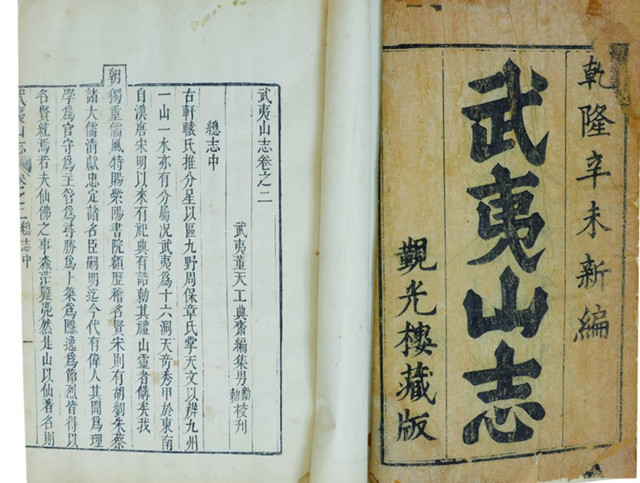 乾隆辛未新編
武夷山志
觀光樓藏版
武夷山志卷之二
武夷董天工典齋編集男校刊
總志中
古軒轅氏推分星以區九野周保章氏掌天文以辨九州
一山一水亦有分屬况武夷為十六洞天奇秀甲於東南
自漢唐宋明以來有祀典有誥勅其禮山靈者備矣我
朝獨重儒風特賜紫陽書院額歷稽名賢宋則有胡劉朱蔡
諸大儒清獻忠定諸名臣嗣明迄今代有偉人其間為理
學為官守為主管為尋勝為卜築為隱遯為節烈皆得以
名賢統焉若夫仙佛之事渺茫難憑然是山以仙著名則
武夷山志 卷之二 總志中 一